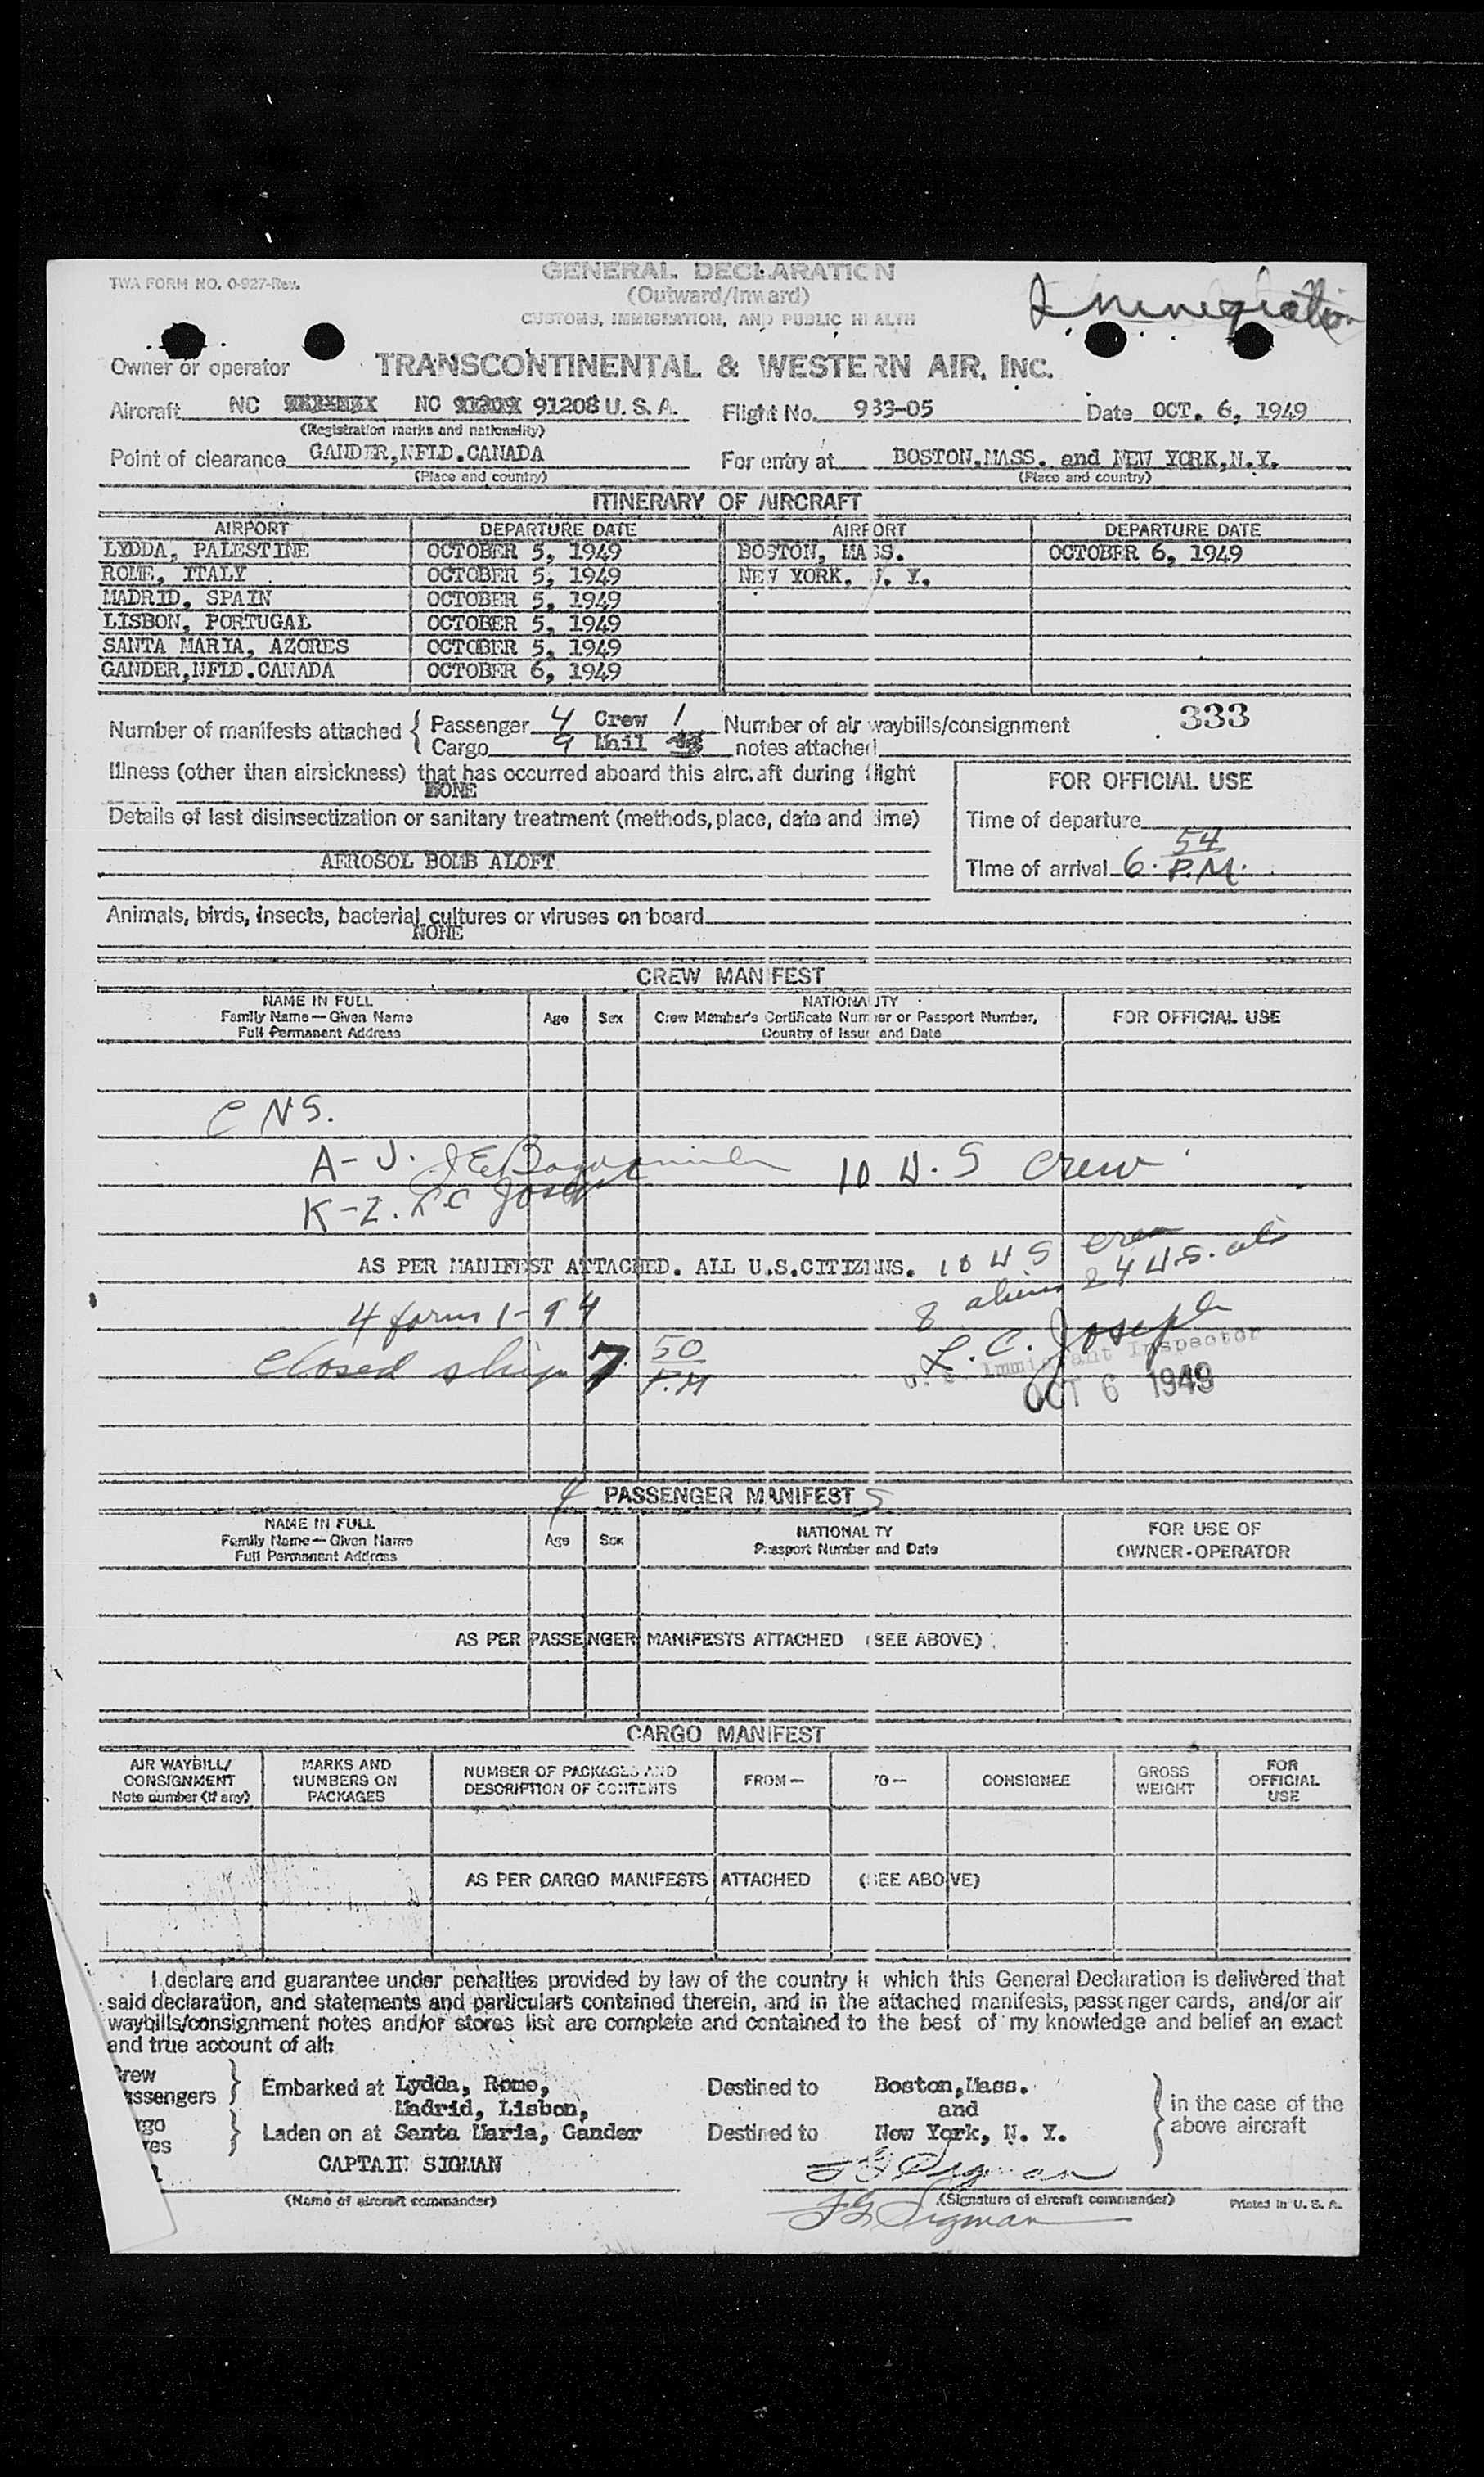 GENERAL DECLARATION
TWA FORM NO. 0-927-Rev.
(Outward/Inward)
CUSTOMS, IMMIGRATION, AND PUBLIC HEALTH
Immigration
Owner or operator TRANSCONTINENTAL & WESTERN AIR, INC.
Aircraft NC NC 91208 U. S. A. Flight No. 933-05 Date OCT. 6, 1949
(Registration marks and nationality)
Point of clearance GANDER,NFLD.CANADA For entry at BOSTON,MASS. and NEW YORK,N.Y.
(Place and country) (Place and country)
ITINERARY OF AIRCRAFT
AIRPORT DEPARTURE DATE AIRPORT DEPARTURE DATE
LYDDA, PALESTINE OCTOBER 5, 1949 BOSTON, MASS. OCTOBER 6, 1949
ROME, ITALY OCTOBER 5, 1949 NEW YORK, N. Y.
MADRID, SPAIN OCTOBER 5, 1949
LISBON, PORTUGAL OCTOBER 5, 1949
SANTA MARIA, AZORES OCTOBER 5, 1949
GANDER,NFLD.CANADA OCTOBER 6, 1949
333
Number of manifests attached { Passenger 4 Crew 1 Number of air waybills/consignment
Cargo 9 Mail notes attached
Illness (other than airsickness) that has occurred aboard this aircraft during flight
NONE
FOR OFFICIAL USE
Details of last disinsectization or sanitary treatment (methods, place, date and time)
Time of departure
AEROSOL BOMB ALOFT
Time of arrival 6. 54 P.M.
Animals, birds, insects, bacterial cultures or viruses on board
NONE
CREW MANIFEST
NAME IN FULL
Family Name—Given Name
Full Permanent Address
Age Sex
NATIONALITY
Crew Member's Certificate Number or Passport Number,
Country of Issue and Date
FOR OFFICIAL USE
C N S.
A - J. J E
K - Z. L C Joseph
10 U. S crew
AS PER MANIFEST ATTACHED. ALL U.S.CITIZENS. 10 U S crew
8 aliens 24 U.S. cits
4 form I-94
L. C. Joseph
closed ship 7 50 P.M
U. S. Immigrant Inspector
OCT 6 1949
4 PASSENGER MANIFEST S
NAME IN FULL
Family Name—Given Name
Full Permanent Address
Age Sex
NATIONALITY
Passport Number and Date
FOR USE OF
OWNER-OPERATOR
AS PER PASSENGER MANIFESTS ATTACHED (SEE ABOVE)
CARGO MANIFEST
AIR WAYBILL/
CONSIGNMENT
Note number (if any)
MARKS AND
NUMBERS ON
PACKAGES
NUMBER OF PACKAGES AND
DESCRIPTION OF CONTENTS
FROM— TO— CONSIGNEE
GROSS
WEIGHT
FOR
OFFICIAL
USE
AS PER CARGO MANIFESTS ATTACHED (SEE ABOVE)
I declare and guarantee under penalties provided by law of the country in which this General Declaration is delivered that
said declaration, and statements and particulars contained therein, and in the attached manifests, passenger cards, and/or air
waybills/consignment notes and/or stores list are complete and contained to the best of my knowledge and belief an exact
and true account of all:
rew
assengers } Embarked at Lydda, Rome, Destined to Boston,Mass.
Madrid, Lisbon, and
rgo
res } Laden on at Santa Maria, Gander Destined to New York, N. Y.
} in the case of the
above aircraft
CAPTAIN SIGMAN F G Sigman
(Name of aircraft commander) (Signature of aircraft commander) Printed in U. S. A.
F G Sigman